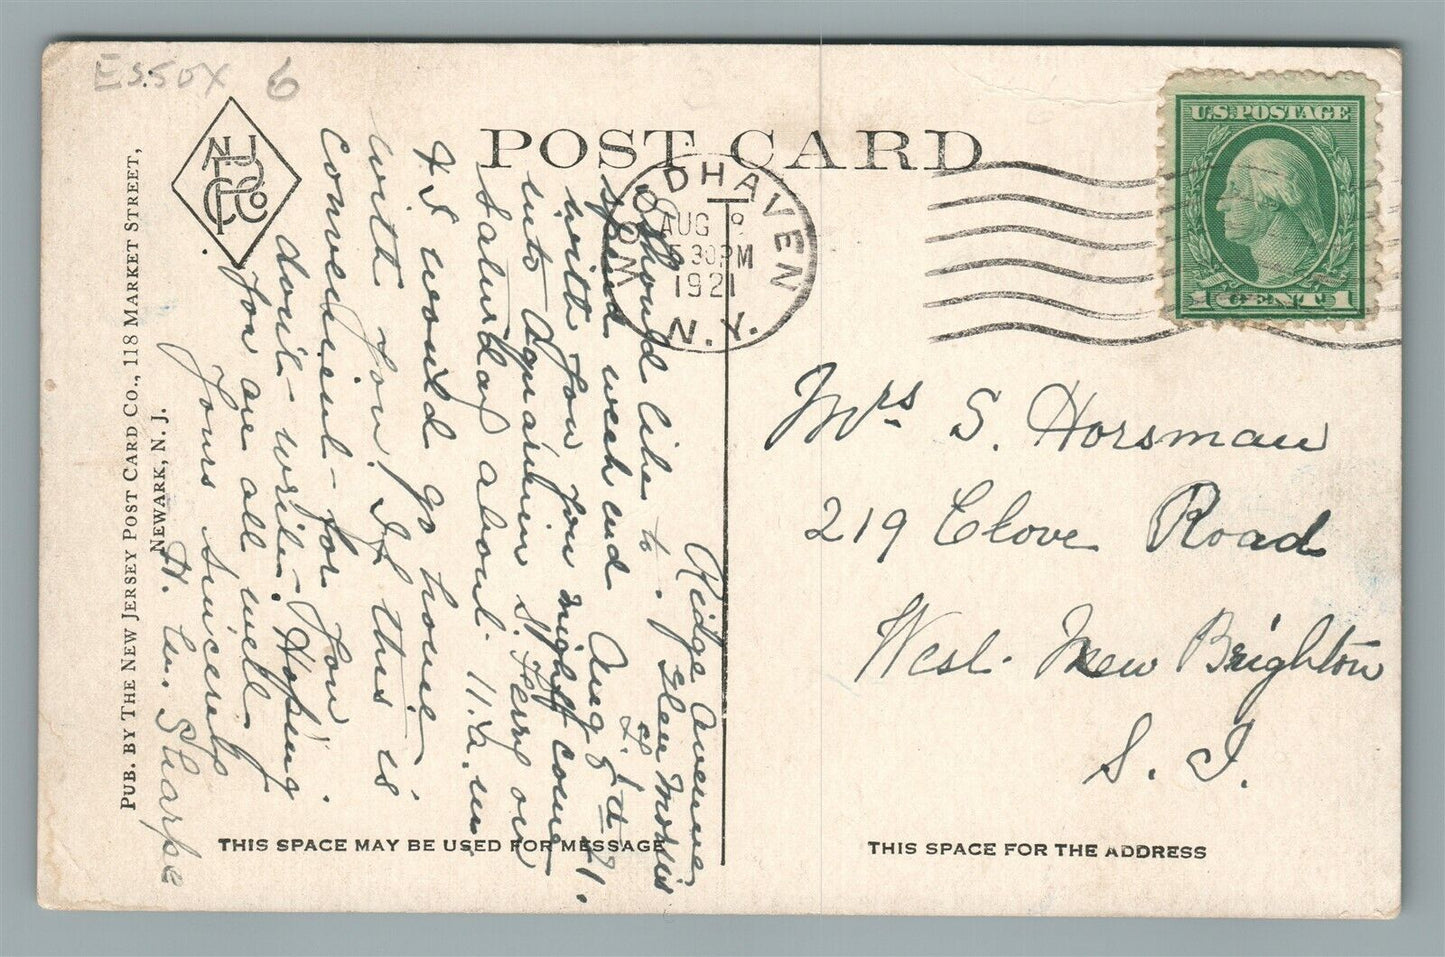 Essox 6
POST CARD
NJ
PCCo
WOODHAVEN
AUG 8
5 30 PM
1921
N.Y.
U.S. POSTAGE
1 CENT 1
Ridge Avenue
Glen Morris
L. I.
Aug 8th 21.
I should like to
spend week end
with you you might come
into Aquarium S. Ferry on
Saturday about 11 a.m
& I would go home
with you. If this is
convenient for you
don't write. Hoping
you are all well
Yours sincerely
H. W. Sharpe
Mrs S. Horsman
219 Clove Road
West New Brighton
S. I.
PUB. BY THE NEW JERSEY POST CARD CO., 118 MARKET STREET,
NEWARK, N. J.
THIS SPACE MAY BE USED FOR MESSAGE
THIS SPACE FOR THE ADDRESS